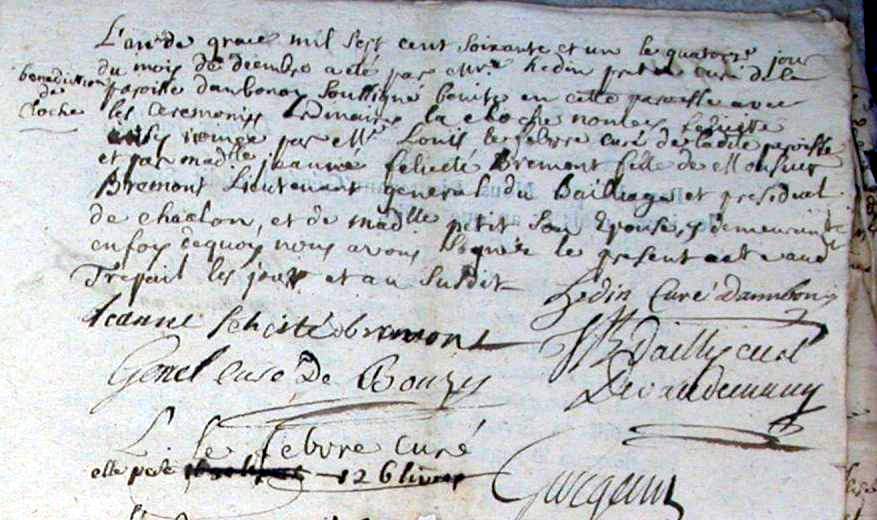 L'an de grace mil sept cent soixante et un le quatorze jour
du mois de decmbre a eté par mr. hedin pretre curé de la
benediction
de
Cloche
paroisse dambonay soussigné benite en cette paroisse avec
les Ceremonies la cloche nommée felicitte
par Mre Louis le febvre curé de ladite paroisse
et par madlle jeanne felicité Bremont fille de Monsieur
Bremont Lieutenant general du Bailliage et presidial
de chaalon, et de madlle petit son Epouse y demeurante
en foy de quoy nous avons Signé le present acte aud
Trepail les jour et an susdit
hedin Curé dambonay
jeanne felicité bremont
Dailly curé
Genel curé De Bouzy
De vaudemany
L. le febvre curé
elle pese 126 livres